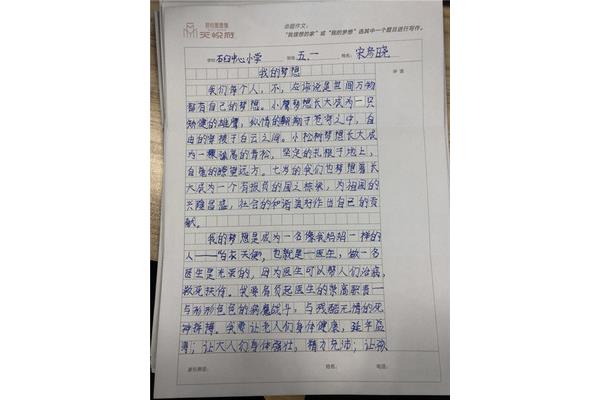 天悦府
命题作文：
"我理想的家"或"我的梦想"选其中一个题目进行写作。
学校 石臼中心小学 班级 五.一 姓名：宋彦晓
评语
我的梦想
我们每个人，不，应该说是世间万物
都有自己的梦想。小鹰梦想长大成为一只
矫健的雄鹰，纵情的翱翔于苍穹之中，自
由的穿梭于白云之间。小松树梦想长大成
为一棵 高的青松，坚定的扎根于地上，
自 的瞭望远方。七岁的我们也梦想着长
大成为一个有抱负的国之栋梁，为祖国的
兴隆昌盛，社会的和谐美好作出自己的贡
献。
我的梦想是成为一名像我妈妈一样的
人——"白衣天使"，也就是—医生，做一名
医生是光荣的，因为医生可以帮人们治病，
救死扶伤。我要肩负起医生的崇高职责—
与形形色色的病魔战斗，与残酷无情的死
神拼搏。我要让老人们身体健康，延年益
寿；让大人们身体强壮，精力充沛；让孩
家长姓名： 姓名： 电话：